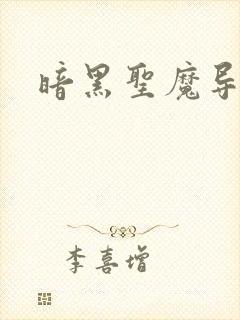 暗黑聖魔导
李喜增